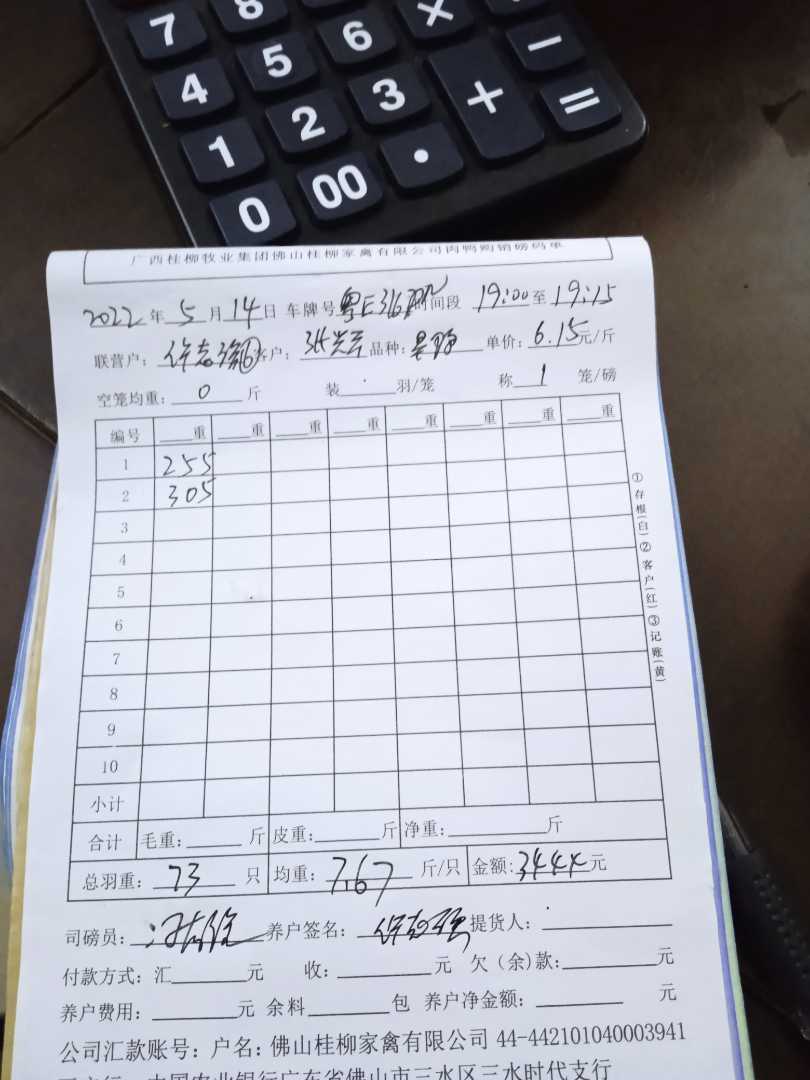 7 8 9 ×
4 5 6 −
1 2 3 + =
0 00 .
广西桂柳牧业集团佛山桂柳家禽有限公司肉鸭购销磅码单
2022年5月14日 车牌号 粤E316 时间段 19:00至19:15
联营户: 许志强⑥ 客户: 张 品种: 单价: 6.15元/斤
空笼均重: 0 斤 装 羽/笼 称 1 笼/磅
编号 重 重 重 重 重 重 重 重
1 255
2 305
3
4
5
6
7
8
9
10
小计
合计 毛重: 斤 皮重: 斤 净重: 斤
总羽重: 73 只 均重: 7.67 斤/只 金额: 3444元
司磅员: 养户签名: 许志强 提货人:
付款方式: 汇 元 收: 元 欠（余)款: 元
养户费用: 元 余料 包 养户净金额: 元
公司汇款账号: 户名: 佛山桂柳家禽有限公司 44-442101040003941
中国农业银行广东省佛山市三水区三水时代支行
①存根(白)②客户(红)③记账(黄)